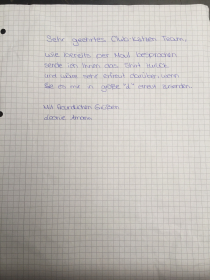 Sehr geehrtes Club-Karten Team,
wie bereits per Mail besprochen
sende ich Ihnen das Shirt zurück
und wäre sehr erfreut darüber, wenn
Sie es mir in größe "L" erneut zusenden.
Mit freundlichen Grüßen